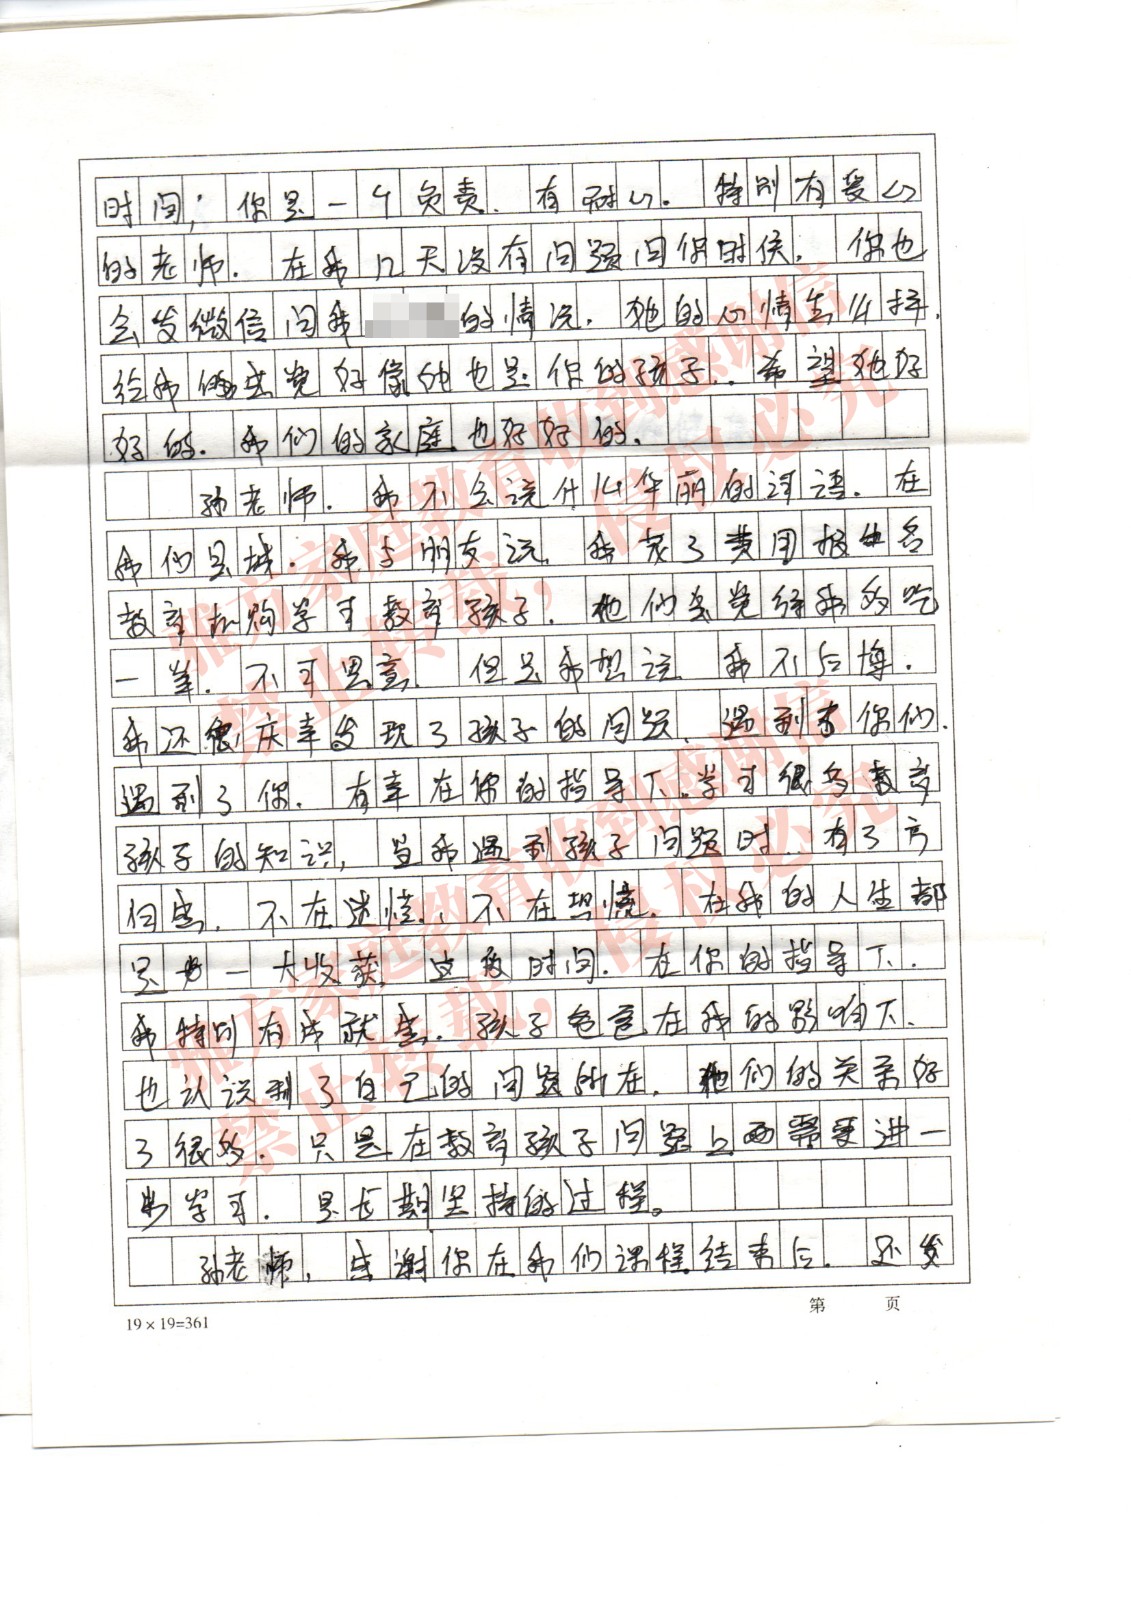 时间；你是一个负责、有耐心。特别有爱心
的老师．在我几天没有问题问你时侯，你也
会发微信问我的情况．她的心情怎么样，
给我的感觉好像她也是你的孩子．希望她好
好的．我们的家庭也好好的．
孙老师．我不会说什么华丽的词语．在
我们县城．我与朋友说．我花了费用报名
教育机购学习教育孩子．他们感觉待我的吃
一掌．不可思意．但是我想说我不后悔．
我还很庆幸发现了孩子的问题．遇到了你们．
遇到了你．有幸在你的指导下．学习很多教育
孩子的知识，当我遇到孩子问题时．有了方
向感．不在迷慌．不在恐慌．在我的人生都
是一大收获．这段时间．在你的指导下．
我特别有成就感．孩子爸爸在我的影响下．
也认识到了自己的问题所在．他们的关系好
了很多．只是在教育孩子问题上面需要进一
步学习．是长期坚持的过程。
孙老师，感谢你在我们课程结束后．还发
19×19=361
第 页
雅方家庭教育收到感谢信
禁止转载，侵权必究
雅方家庭教育收到感谢信
禁止转载，侵权必究